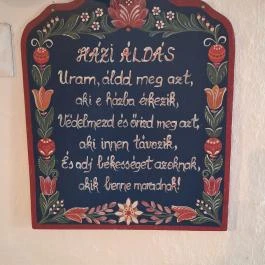 HÁZI ÁLDÁS
Uram, áldd meg azt,
aki e házba érkezik,
Védelmezd és őrizd meg azt,
aki innen távozik,
És adj békességet azoknak,
akik benne maradnak!